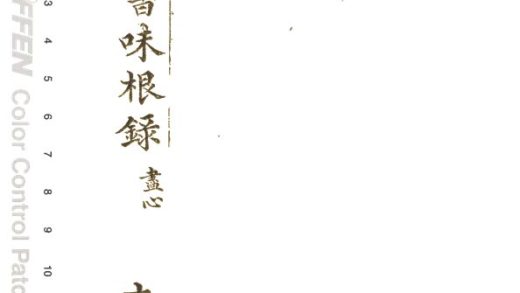 味根録
盡心
FFEN Color Control Patc
4 5 6 7 8 9 10